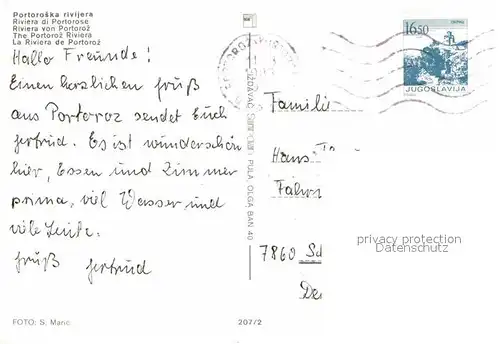 Portoroška rivijera
Riviera di Portorose
Riviera von Portorož
The Portorož Riviera
La Riviera de Portorož
Hallo Freunde!
Einen herzlichen Gruß
aus Portoroz sendet Euch
Gertrud. Es ist wunderschön
hier, Essen und Zimmer
prima, viel Wasser und
viele Leute.
Gruß Gertrud
FOTO: S. Marić
207/2
PULA, OLGA BAN 40
16.50
JUGOSLAVIJA
Familie
Hans
7860
privacy protection
Datenschutz